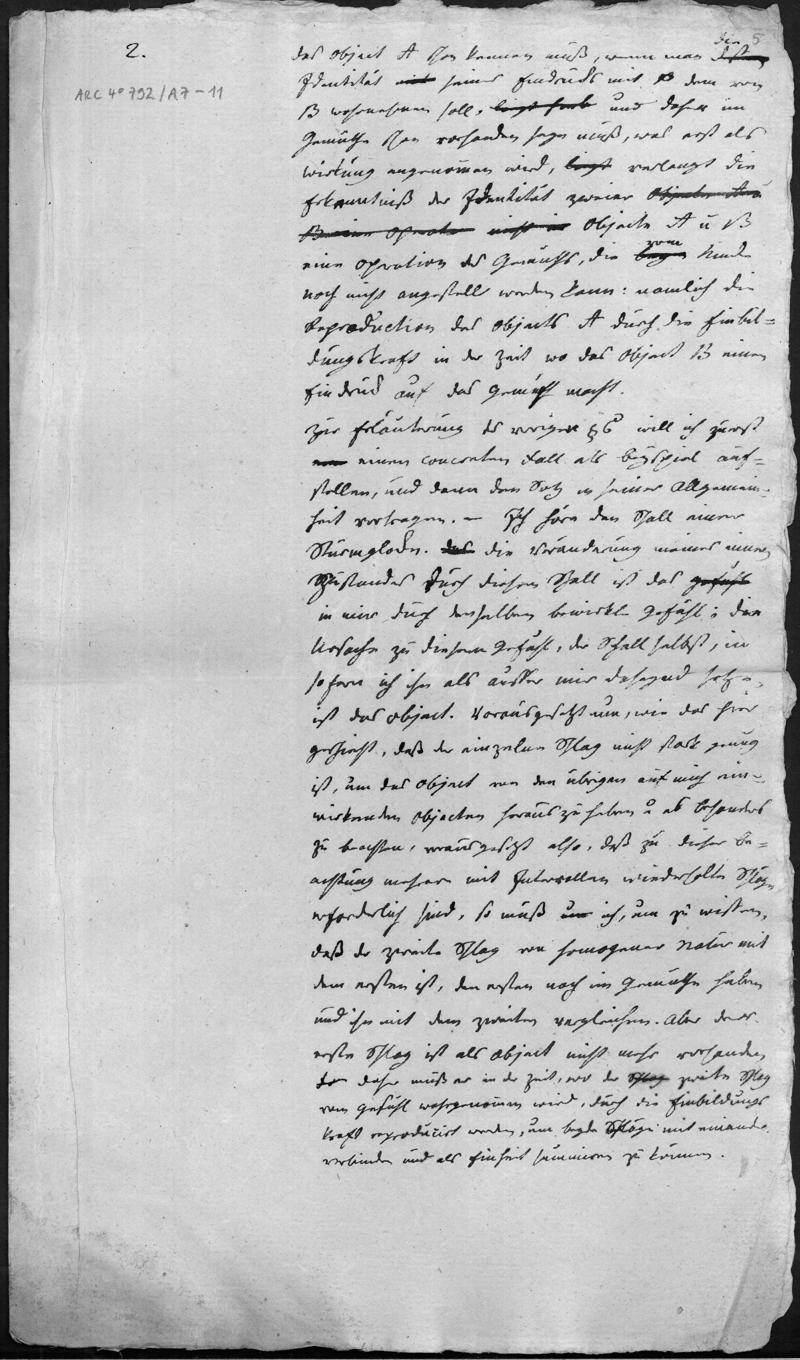 2.
5
ARC 4° 792/A7-11
die
das Object A schon kennen muß, wenn man
Identität seines Eindrucks mit dem von
B wahrnehmen soll, und daher im
Gemüthe schon vorhanden seyn muß, was erst als
Wirkung angenommen wird, verlangt die
Erkenntniß der Identität zweier
Objecte A u B
eine Operation des Gemüths, die vom Kinde
noch nicht angestellt werden kann: nämlich die
Reproduction des Objects A durch die Einbil=
dungskraft in der Zeit wo das Object B einen
Eindruck auf das Gemüth macht.
Zur Erläuterung des vorigen § will ich zuerst
einen concreten Fall als Beyspiel auf=
stellen, und dann den Satz in seiner Allgemein=
heit vortragen. – Ich höre den Schall einer
Sturmglocke. die Veränderung meines innern
Zustandes durch diesen Schall ist das
in mir durch denselben bewirkte Gefühl; die
Ursache zu diesem Gefühl, der Schall selbst, in
sofern ich ihn als ausser mir daseyend setze,
ist das Object. Vorausgesetzt nun, wie das hier
geschieht, daß der einzelne Schlag nicht stark genug
ist, um das Object von den übrigen auf mich ein=
wirkenden Objecten herauszuheben u es besonders
zu beachten, vorausgesetzt also, daß zu dieser Be=
achtung mehrere mit Intervallen wiederholte Schläge
erforderlich sind, so muß ich, um zu wissen,
daß der zweite Schlag von homogener Natur mit
dem ersten ist, den ersten noch im Gemüthe haben
und ihn mit dem zweiten vergleichen. Aber der
erste Schlag ist als Object nicht mehr vorhanden
daher muß er in der Zeit, wo der zweite Schlag
vom Gefühl wahrgenommen wird, durch die Einbildungs
kraft reproducirt werden, um beyde Schläge mit einander
verbinden und als Einheit summiren zu können.